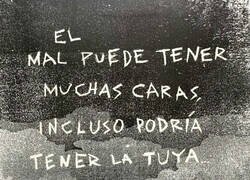 EL
MAL PUEDE TENER
MUCHAS CARAS,
INCLUSO PODRÍA
TENER LA TUYA...